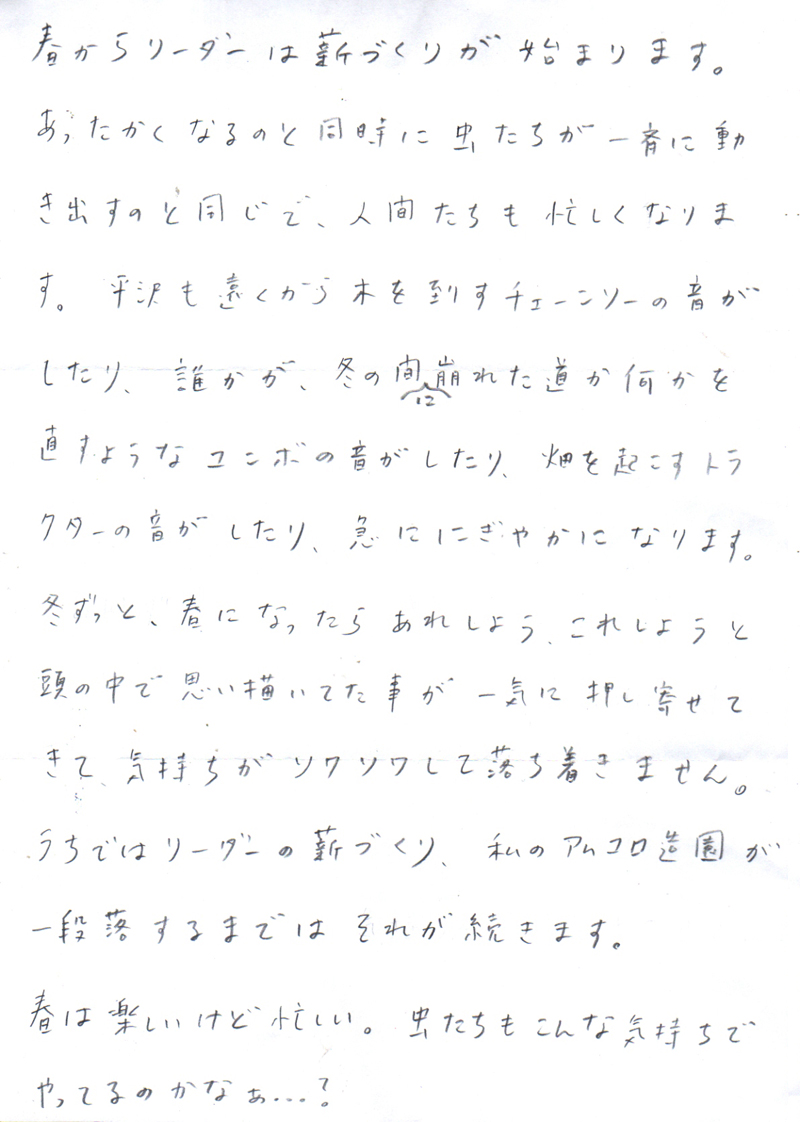 春からリーダーは薪づくりが始まります。
あったかくなるのと同時に虫たちが一斉に動
き出すのと同じで、人間たちも忙しくなりま
す。平沢も遠くから木を到すチェーンソーの音が
したり、誰かが、冬の間に崩れた道か何かを
直すようなユンボの音がしたり、畑を起こすトラ
クターの音がしたり、急ににぎやかになります。
冬ずっと、春になったらあれしよう、これしようと
頭の中で思い描いてた事が一気に押し寄せて
きて、気持ちがソワソワして落ち着きません。
うちではリーダーの薪づくり、私のアムコロ造園が
一段落するまではそれが続きます。
春は楽しいけど忙しい。虫たちもこんな気持ちで
やってるのかなぁ…?